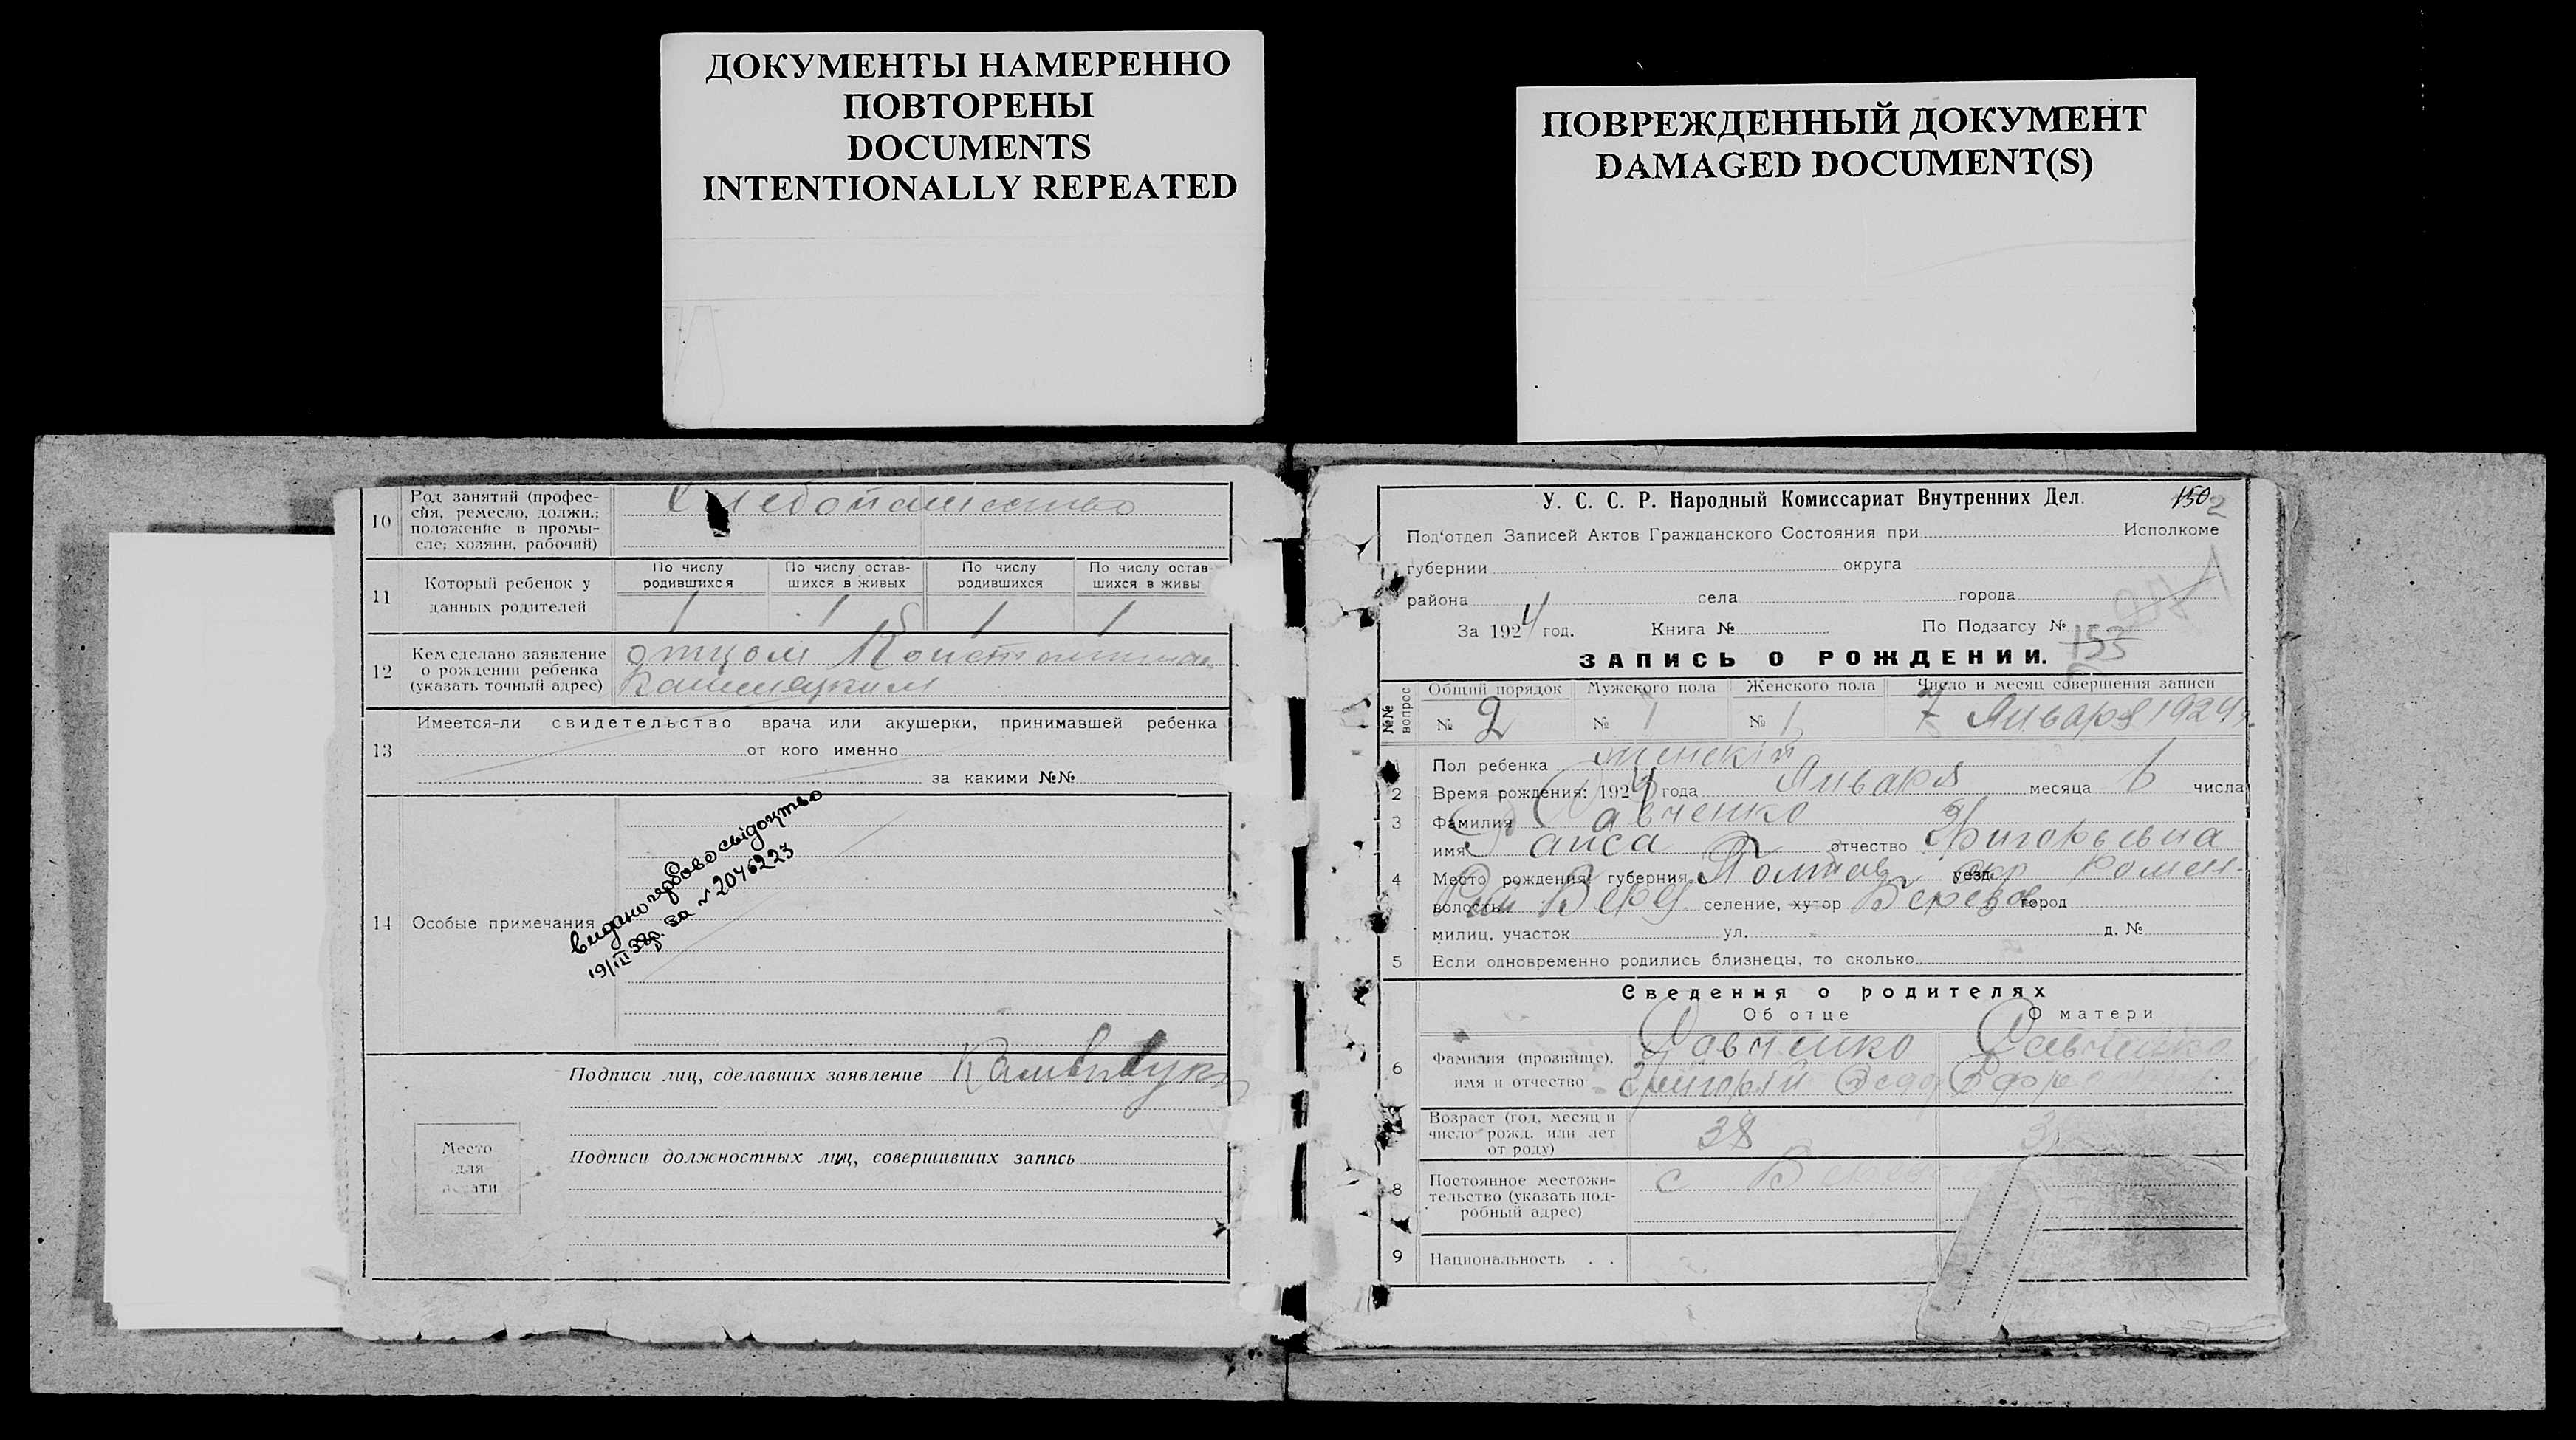 ДОКУМЕНТЫ НАМЕРЕННО
ПОВТОРЕНЫ
DOCUMENTS
INTENTIONALLY REPEATED
ПОВРЕЖДЕННЫЙ ДОКУМЕНТ
DAMAGED DOCUMENT(S)
10 Род занятий (профес-
сия, ремесло, должн.;
положение в промы-
сле; хозяин, рабочий)
Хлебопашество
11 Который ребенок у
данных родителей
По числу родившихся
По числу остав-шихся в живых
По числу родившихся
По числу остав шихся в живы
1 1 1 1
12 Кем сделано заявление
о рождении ребенка
(указать точный адрес)
отцом
13 Имеется-ли свидетельство врача или акушерки, принимавшей ребенка
от кого именно
за какими №№
14 Особые примечания
видано
19/III за № 2046223
Подписи лиц, сделавших заявление
Место
для
печати
Подписи должностных лиц, совершивших запись
У. С. С. Р. Народный Комиссариат Внутренних Дел.
150 2
Под'отдел Записей Актов Гражданского Состояния при Исполкоме
губернии округа
района села города
За 1924 год. Книга № По Подзагсу №
153
ЗАПИСЬ О РОЖДЕНИИ.
№№ вопрос
Общий порядок Мужского пола Женского пола Число и месяц совершения записи
№ 2 № 1 № 1 7 Января 1924 г.
1 Пол ребенка женский
2 Время рождения: 1924 года Января месяца 6 числа
3 Фамилия Савченко
имя Раиса отчество Григорьевна
4 Место рождения: губерния Полтав уезд Ромен-
волость селение, хутор Березов город
милиц. участок ул. д. №
5 Если одновременно родились близнецы, то сколько
Сведения о родителях
Об отце О матери
6 Фамилия (прозвище),
имя и отчество
Савченко Савченко
Григорий
Возраст (год, месяц и
число рожд. или лет
от роду)
38
8 Постоянное местожи-
тельство (указать под-
робный адрес)
с
9 Национальность . .